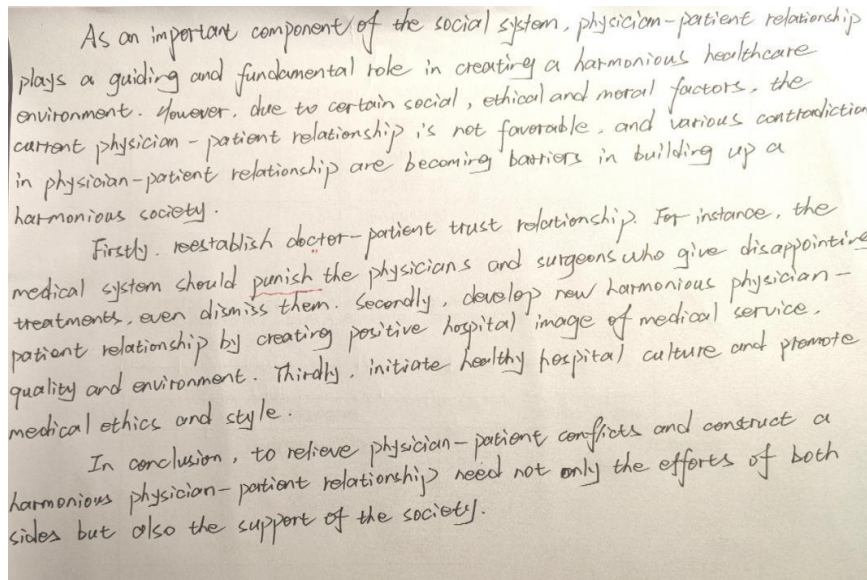 As an important component of the social system, physician-patient relationship
plays a guiding and fundamental role in creating a harmonious healthcare
environment. However, due to certain social, ethical and moral factors, the
current physician-patient relationship is not favorable, and various contradiction
in physician-patient relationship are becoming barriers in building up a
harmonious society.
Firstly, reestablish doctor-patient trust relationship. For instance, the
medical system should punish the physicians and surgeons who give disappointing
treatments, even dismiss them. Secondly, develop new harmonious physician-
patient relationship by creating positive hospital image of medical service,
quality and environment. Thirdly, initiate healthy hospital culture and promote
medical ethics and style.
In conclusion, to relieve physician-patient conflicts and construct a
harmonious physician-patient relationship need not only the efforts of both
sides but also the support of the society.